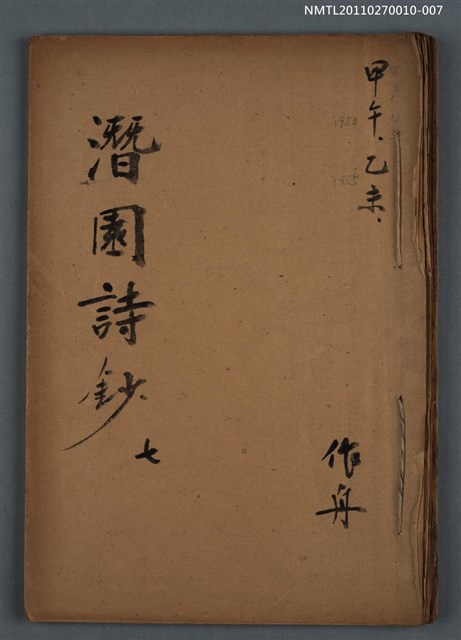 NMTL20110270010-007
甲午、乙未、
1954
1955
潛園詩鈔
七
作舟